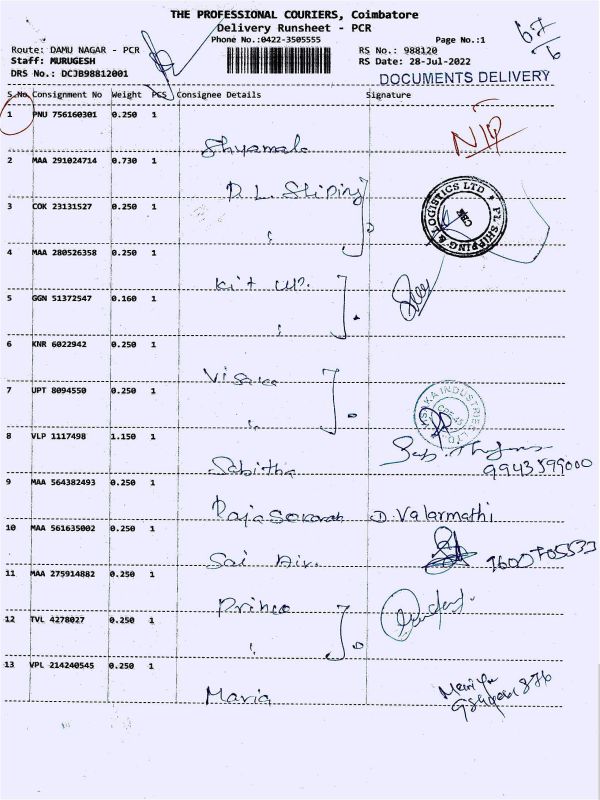 THE PROFESSIONAL COURIERS, Coimbatore
Delivery Runsheet - PCR
Phone No.:0422-3505555 Page No.:1
67/6
Route: DAMU NAGAR - PCR RS No.: 988120
Staff: MURUGESH RS Date: 28-Jul-2022
DRS No.: DCJB98812001
DOCUMENTS DELIVERY
S.No. Consignment No Weight PCS Consignee Details Signature
1 PNU 756160301 0.250 1
Shyamala
2 MAA 291024714 0.730 1
3 COK 23131527 0.250 1
SHIPPING & LOGISTICS LTD
CBE
4 MAA 280526358 0.250 1
5 GGN 51372547 0.160 1
6 KNR 6022942 0.250 1
Visaka
7 UPT 8094550 0.250 1
INDUSTRIES LTD.
8 VLP 1117498 1.150 1
Sabitha
9943599000
9 MAA 564382493 0.250 1
D. Valarmathi
10 MAA 561635002 0.250 1
Sai Air.
11 MAA 275914882 0.250 1
Prince
12 TVL 4278027 0.250 1
13 VPL 214240545 0.250 1
Maria